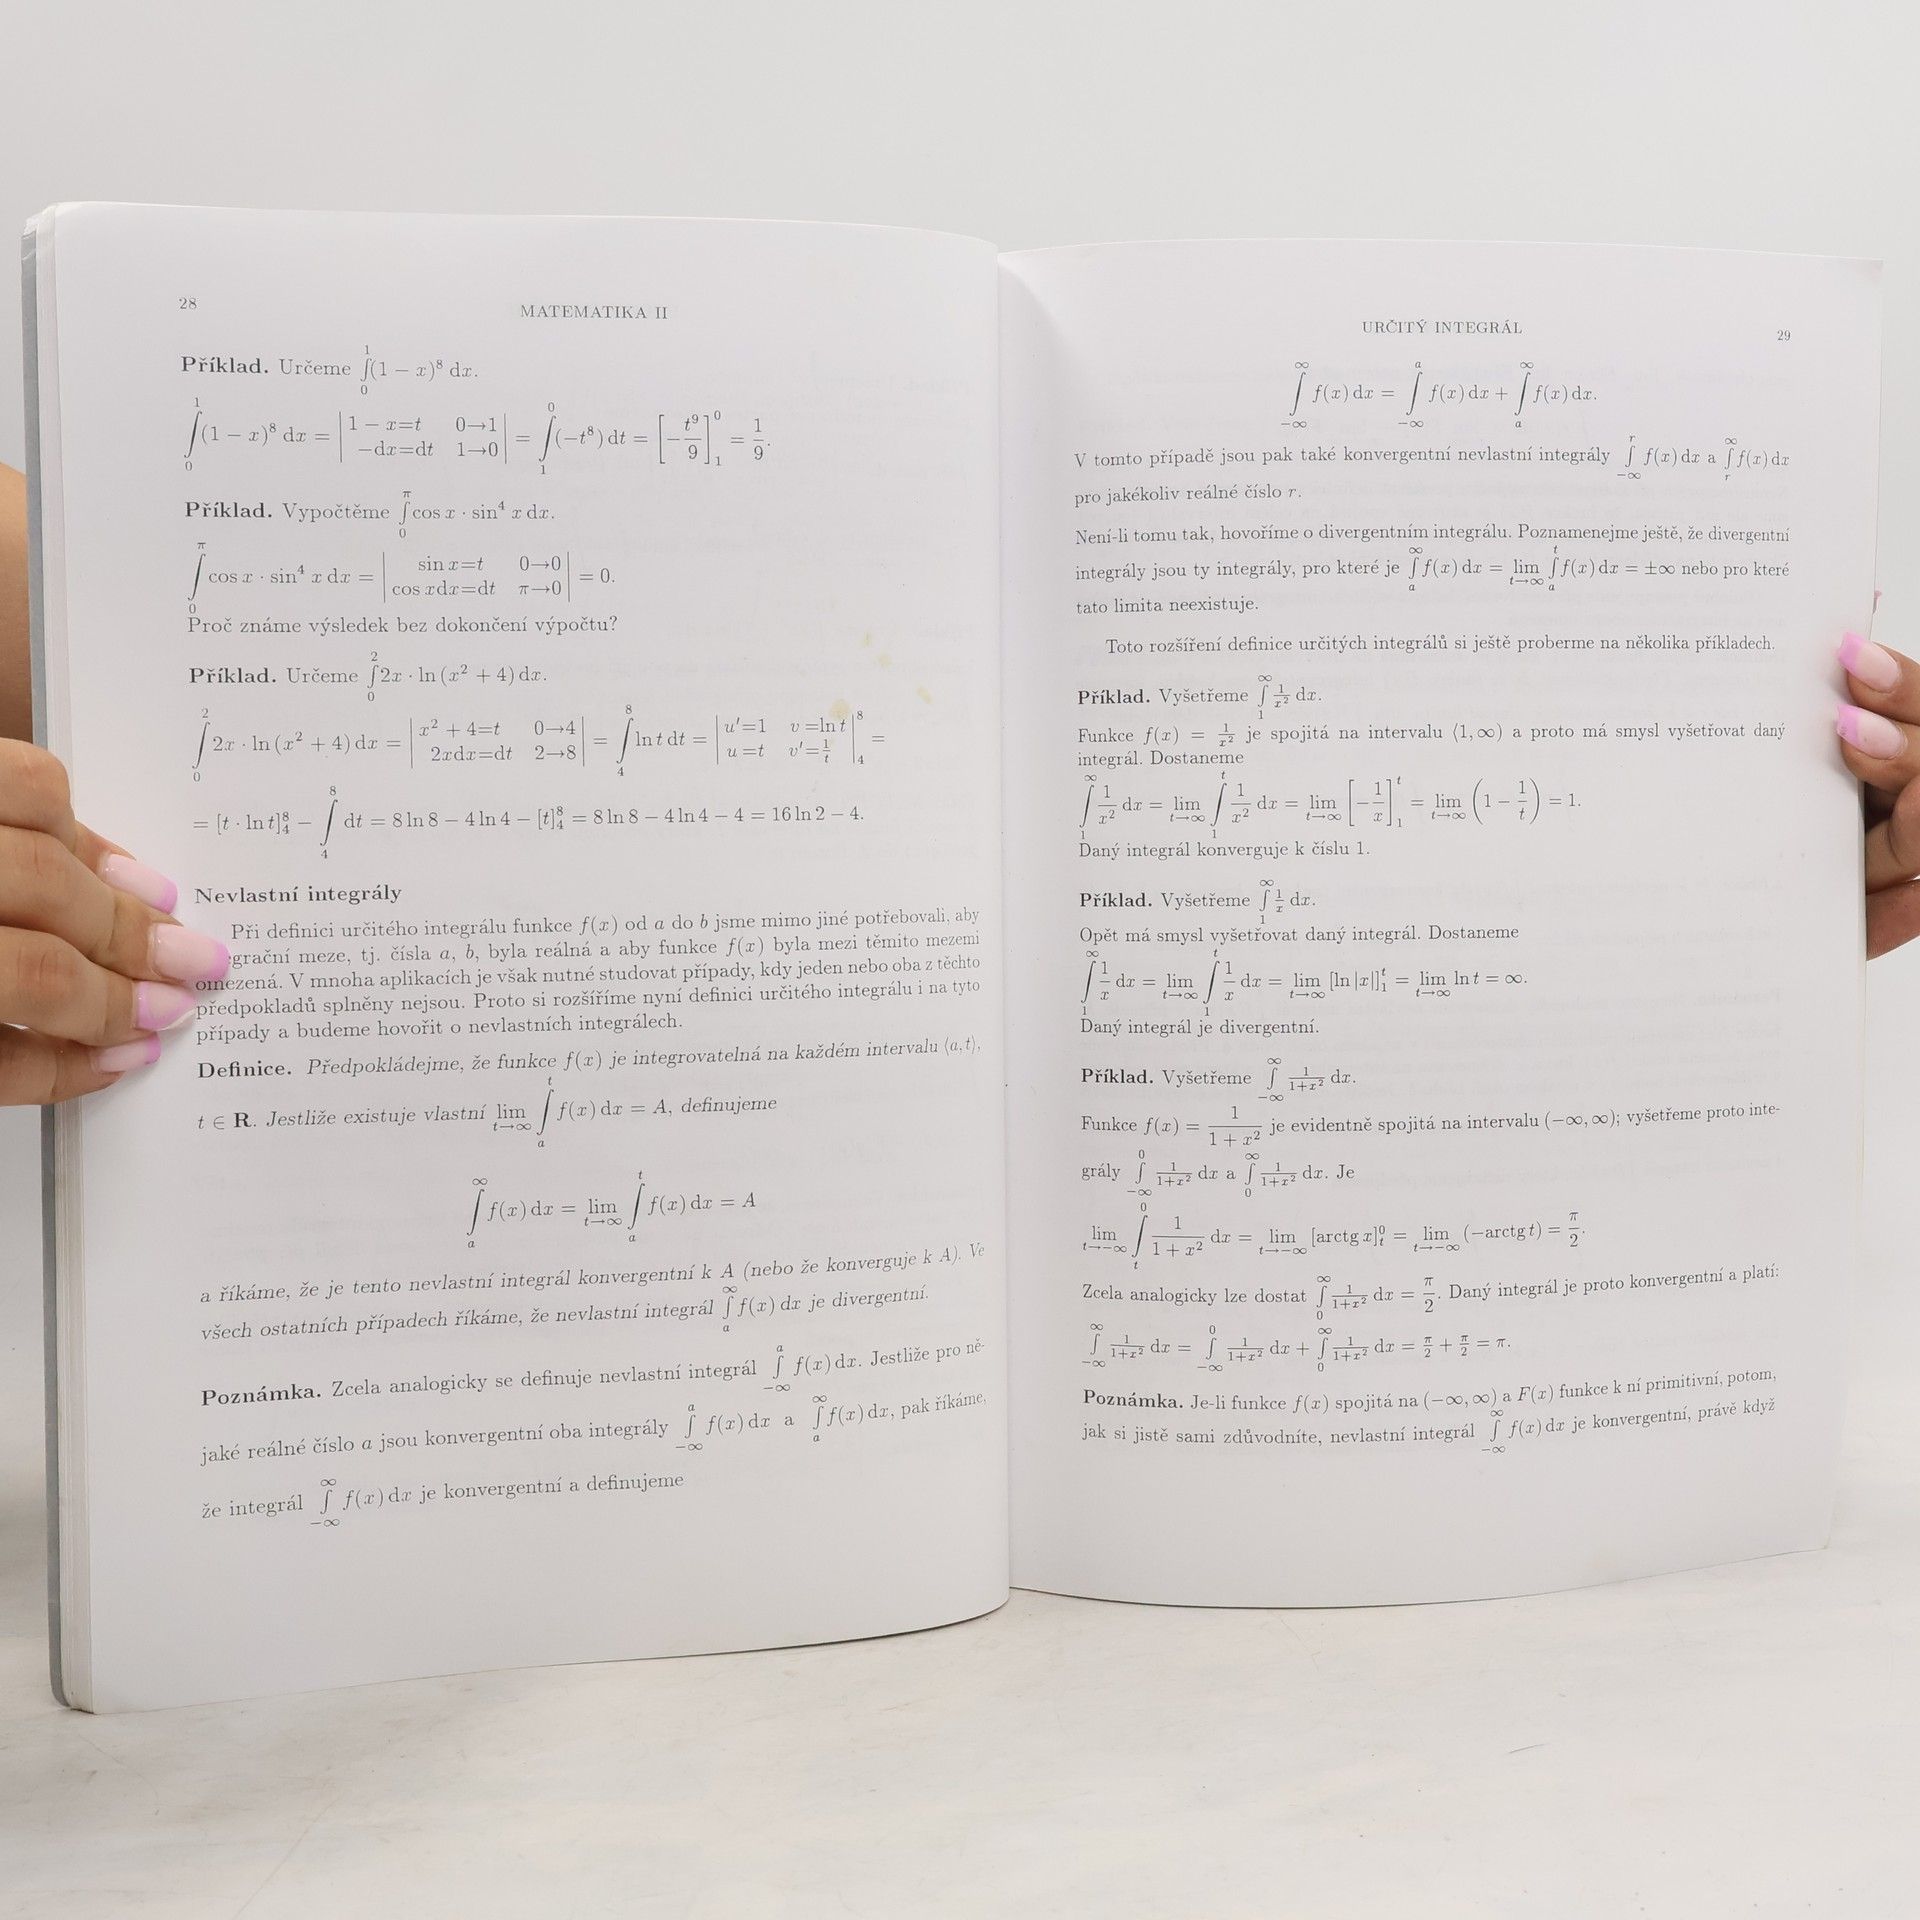 28
MATEMATIKA II
Příklad. Určeme ∫₀¹(1 − x)⁸ dx.
∫₀¹(1 − x)⁸ dx = | 1 − x=t 0→1 ; −dx=dt 1→0 | = ∫₁⁰(−t⁸) dt = [−t⁹/9]₁⁰ = 1/9.
Příklad. Vypočtěme ∫₀^π cos x · sin⁴ x dx.
∫₀^π cos x · sin⁴ x dx = | sin x=t 0→0 ; cos xdx=dt π→0 | = 0.
Proč známe výsledek bez dokončení výpočtu?
Příklad. Určeme ∫₀² 2x · ln (x² + 4) dx.
∫₀² 2x · ln (x² + 4) dx = | x² + 4=t 0→4 ; 2xdx=dt 2→8 | = ∫₄⁸ ln t dt = | u′=1 v =ln t ; u =t v′=1/t |₄⁸ =
= [t · ln t]₄⁸ − ∫₄⁸ dt = 8 ln 8 − 4 ln 4 − [t]₄⁸ = 8 ln 8 − 4 ln 4 − 4 = 16 ln 2 − 4.
Nevlastní integrály
Při definici určitého integrálu funkce f(x) od a do b jsme mimo jiné potřebovali, aby
egrační meze, tj. čísla a, b, byla reálná a aby funkce f(x) byla mezi těmito mezemi
omezená. V mnoha aplikacích je však nutné studovat případy, kdy jeden nebo oba z těchto
předpokladů splněny nejsou. Proto si rozšíříme nyní definici určitého integrálu i na tyto
případy a budeme hovořit o nevlastních integrálech.
Definice. Předpokládejme, že funkce f(x) je integrovatelná na každém intervalu ⟨a, t⟩,
t ∈ R. Jestliže existuje vlastní lim t→∞ ∫ₐᵗ f(x) dx = A, definujeme
∫ₐ^∞ f(x) dx = lim t→∞ ∫ₐᵗ f(x) dx = A
a říkáme, že je tento nevlastní integrál konvergentní k A (nebo že konverguje k A). Ve
všech ostatních případech říkáme, že nevlastní integrál ∫ₐ^∞ f(x) dx je divergentní.
Poznámka. Zcela analogicky se definuje nevlastní integrál ∫₋∞^a f(x) dx. Jestliže pro ně-
jaké reálné číslo a jsou konvergentní oba integrály ∫₋∞^a f(x) dx a ∫ₐ^∞ f(x) dx, pak říkáme,
že integrál ∫₋∞^∞ f(x) dx je konvergentní a definujeme
URČITÝ INTEGRÁL
29
∫₋∞^∞ f(x) dx = ∫₋∞^a f(x) dx + ∫ₐ^∞ f(x) dx.
V tomto případě jsou pak také konvergentní nevlastní integrály ∫₋∞^r f(x) dx a ∫ᵣ^∞ f(x) dx
pro jakékoliv reálné číslo r.
Není-li tomu tak, hovoříme o divergentním integrálu. Poznamenejme ještě, že divergentní
integrály jsou ty integrály, pro které je ∫ₐ^∞ f(x) dx = lim t→∞ ∫ₐᵗ f(x) dx = ±∞ nebo pro které
tato limita neexistuje.
Toto rozšíření definice určitých integrálů si ještě proberme na několika příkladech.
Příklad. Vyšetřeme ∫₁^∞ 1/x² dx.
Funkce f(x) = 1/x² je spojitá na intervalu ⟨1, ∞) a proto má smysl vyšetřovat daný
integrál. Dostaneme
∫₁^∞ 1/x² dx = lim t→∞ ∫₁ᵗ 1/x² dx = lim t→∞ [−1/x]₁ᵗ = lim t→∞ (1 − 1/t) = 1.
Daný integrál konverguje k číslu 1.
Příklad. Vyšetřeme ∫₁^∞ 1/x dx.
Opět má smysl vyšetřovat daný integrál. Dostaneme
∫₁^∞ 1/x dx = lim t→∞ ∫₁ᵗ 1/x dx = lim t→∞ [ln |x|]₁ᵗ = lim t→∞ ln t = ∞.
Daný integrál je divergentní.
Příklad. Vyšetřeme ∫₋∞^∞ 1/(1+x²) dx.
Funkce f(x) = 1/(1 + x²) je evidentně spojitá na intervalu (−∞, ∞); vyšetřeme proto inte-
grály ∫₋∞^0 1/(1+x²) dx a ∫₀^∞ 1/(1+x²) dx. Je
lim t→−∞ ∫ₜ⁰ 1/(1 + x²) dx = lim t→−∞ [arctg x]ₜ⁰ = lim t→−∞ (−arctg t) = π/2.
Zcela analogicky lze dostat ∫₀^∞ 1/(1+x²) dx = π/2. Daný integrál je proto konvergentní a platí:
∫₋∞^∞ 1/(1+x²) dx = ∫₋∞^0 1/(1+x²) dx + ∫₀^∞ 1/(1+x²) dx = π/2 + π/2 = π.
Poznámka. Je-li funkce f(x) spojitá na (−∞, ∞) a F(x) funkce k ní primitivní, potom,
jak si jistě sami zdůvodníte, nevlastní integrál ∫₋∞^∞ f(x) dx je konvergentní, právě když